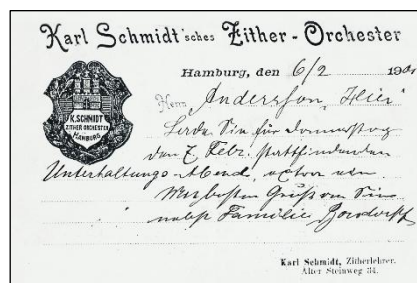 Karl Schmidt'sches Zither-Orchester
Hamburg, den 6/2 190
K. SCHMIDT
ZITHER ORCHESTER
HAMBURG
Herrn Andersson, Hier
Lade Sie für Donnerstag
den 7. Febr. stattfindenden
Unterhaltungs-Abend, ein
Gruß von
nebst Familie
Karl Schmidt, Zitherlehrer.
Alter Steinweg 34.